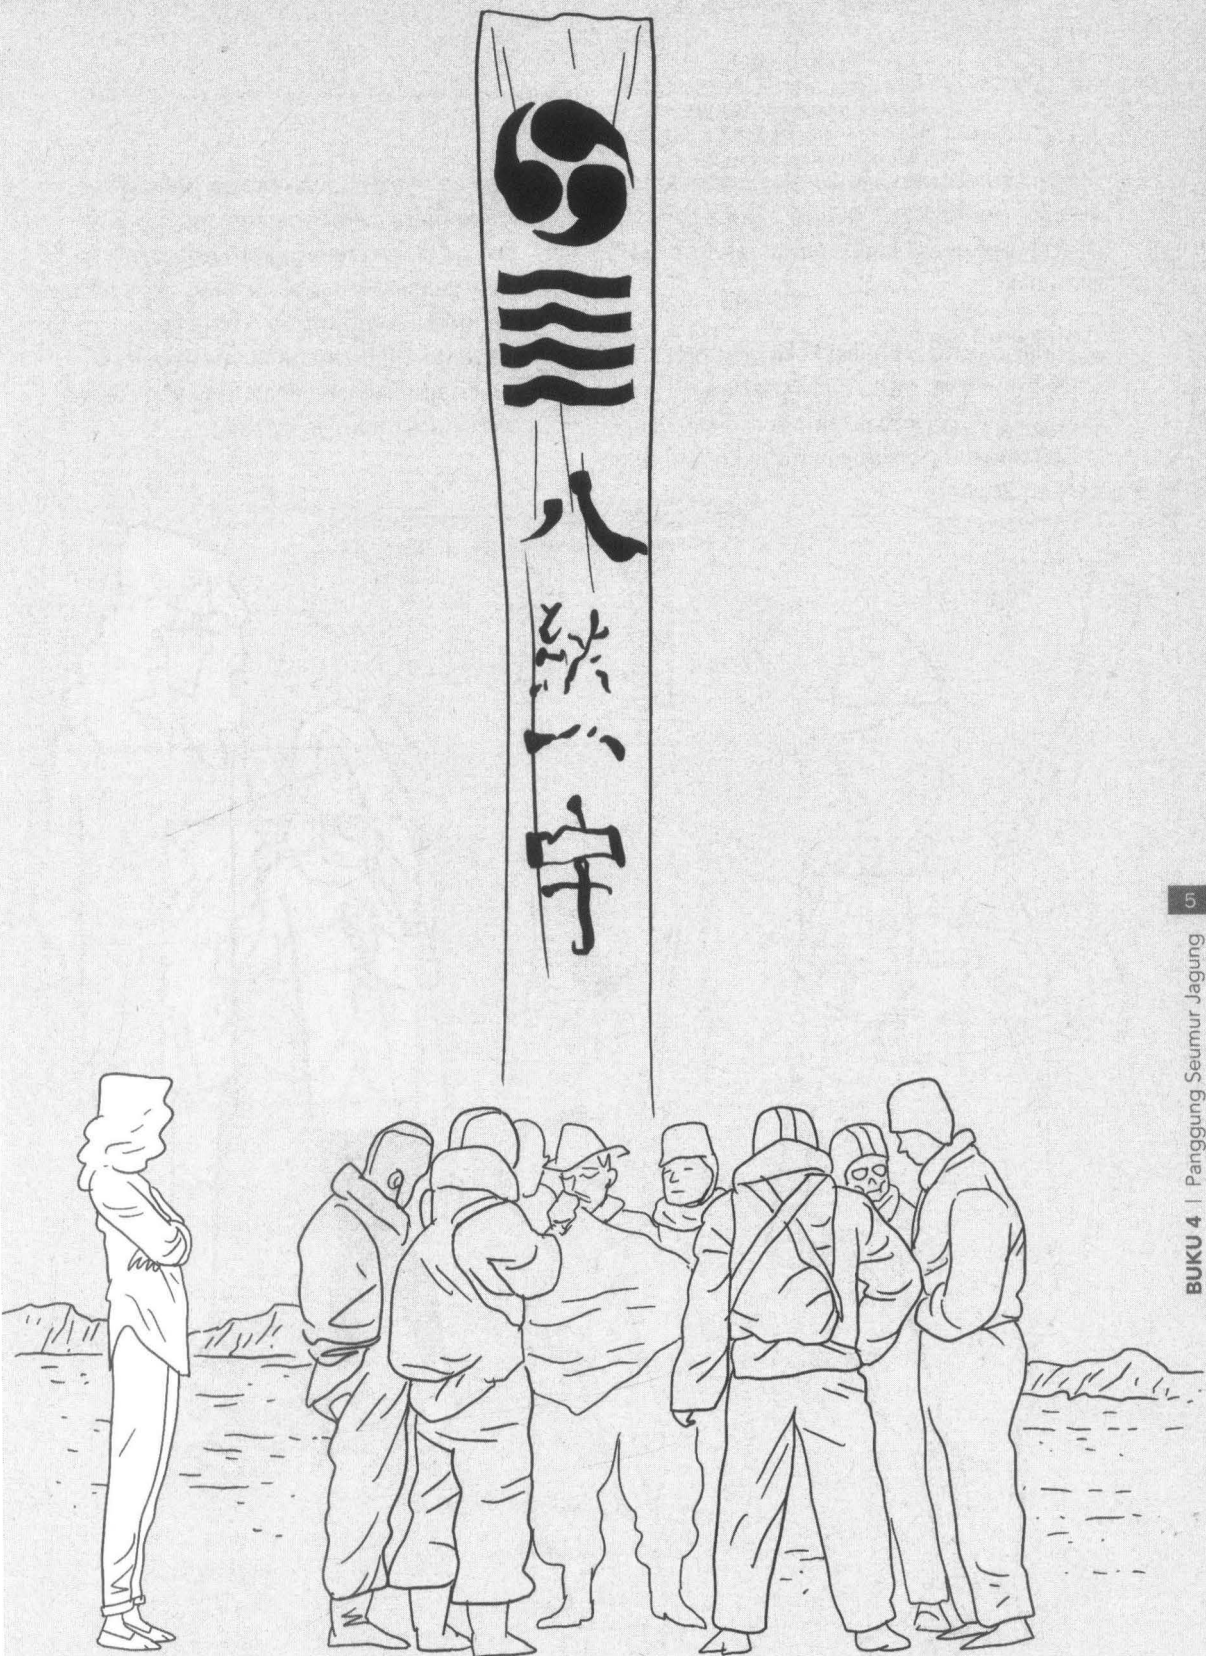 八紘一宇
5
BUKU 4 | Panggung Seumur Jagung